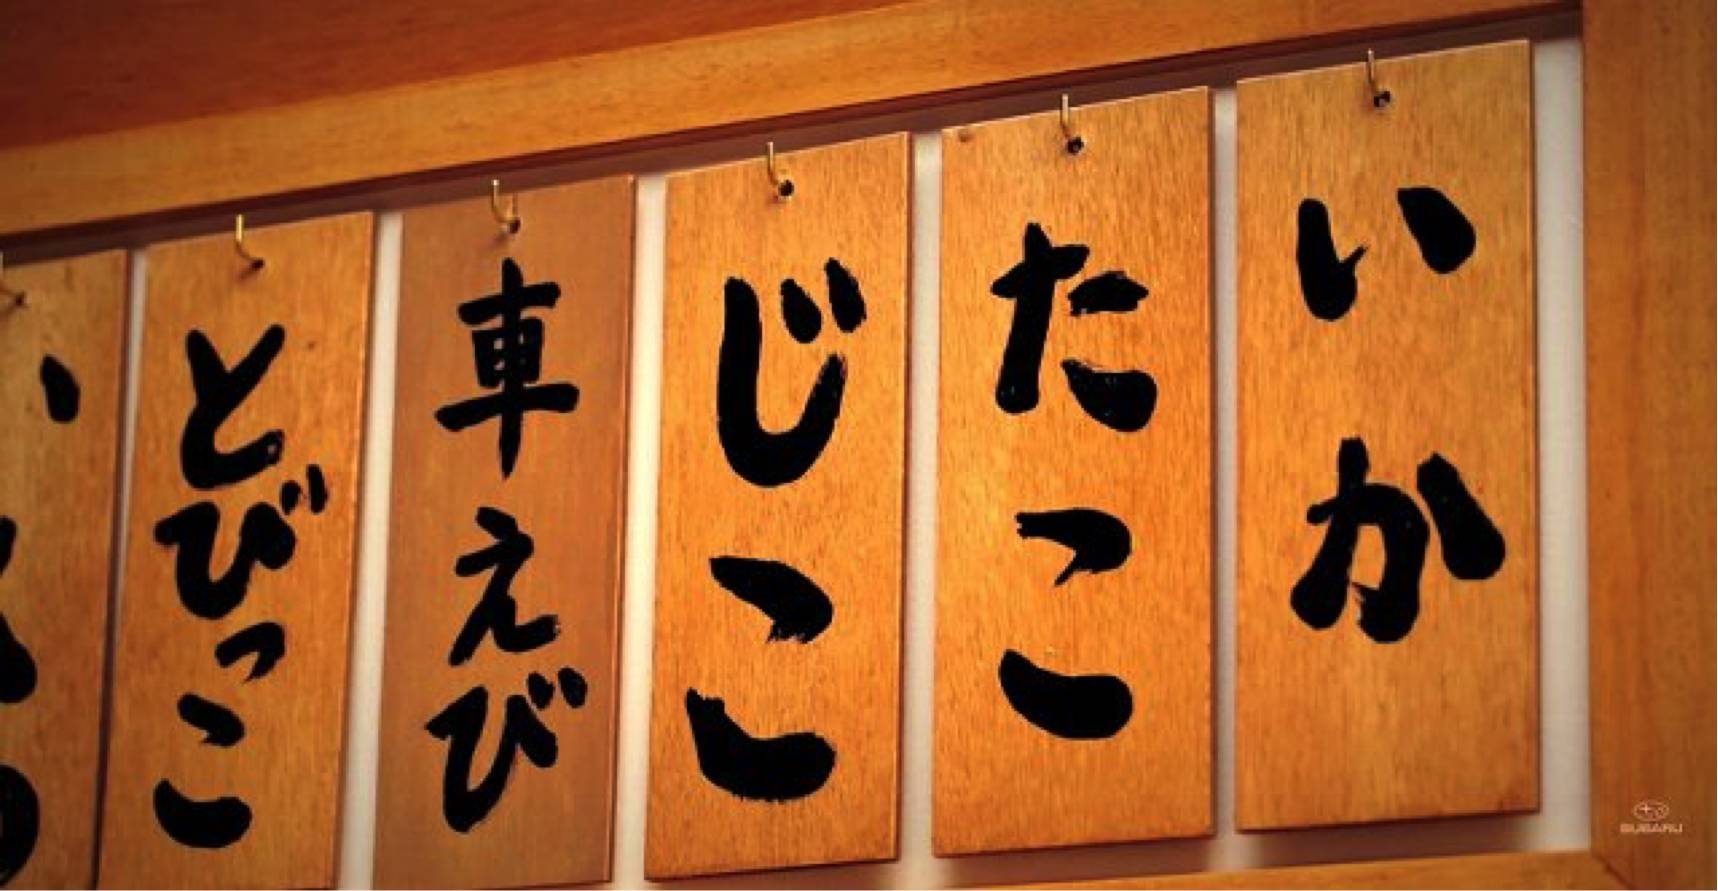 いか
たこ
じこ
車えび
とびっこ
SUBARU